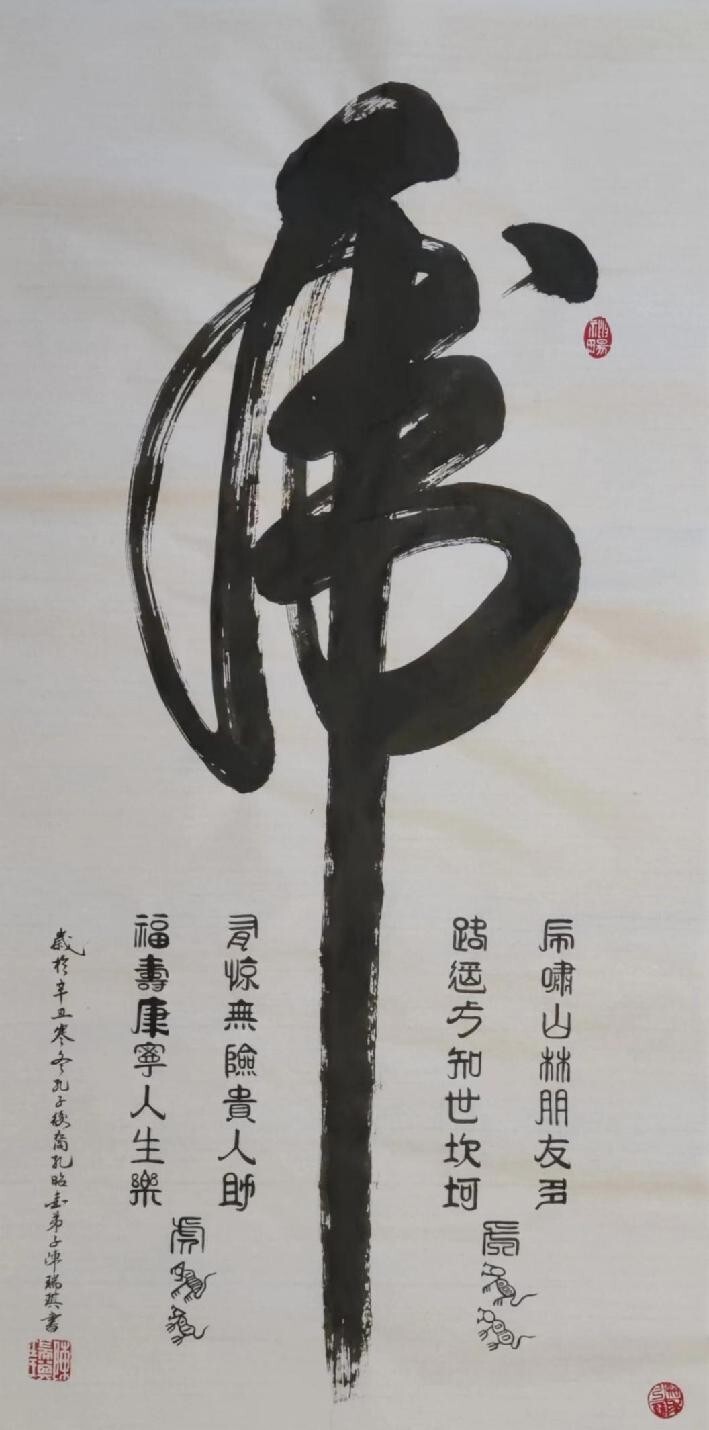 虎
虎嘯山林朋友多
路遥方知世坎坷
虎
有惊無險貴人助
福壽康寧人生樂
虎
歲於辛丑寒冬孔子後裔孔昭 弟子 瑞琪書